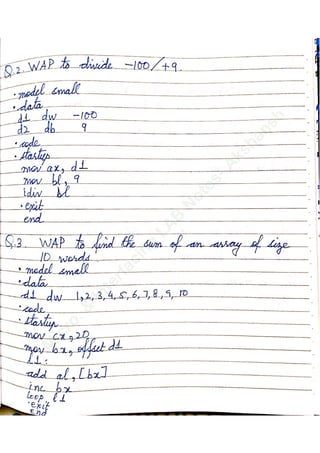 Q.2. WAP to divide -100/+9.
.model small
.data
d1 dw -100
d2 db 9
.code
.startup
mov ax, d1
mov bl, 9
idiv bl
.exit
end
Q.3. WAP to find the sum of an array of size
10 words.
.model small
.data
d1 dw 1,2,3,4,5,6,7,8,9,10
.code
.startup
mov cx,20
mov bx, offset d1
l1:
add al, [bx]
inc bx
loop l1
.exit
End